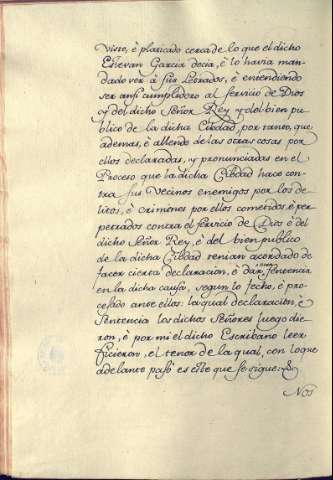 Visto, è platicado cerca de lo que el dicho
Estevan Garcia decia, è lo havia man-
dado ver à sus Letrados, è entendiendo
ser ansi cumplidero al servicio de Dios
y del dicho Señor Rey y del bien pu-
blico de la dicha Cibdad, por tanto, que
ademas, è allende de las otras cosas por
ellos declaradas, y pronunciadas en el
Proceso que la dicha Cibdad hace con-
tra sus Vecinos enemigos por los de-
litos, è crimines por ellos cometidos è per
petrados contra el servicio de Dios è del
dicho Señor Rey, è del bien publico
de la dicha Cibdad tenian acordado de
facer cierta declaracion, è dar sentencia
en la dicha causa, segun lo fecho, è pro-
cesado ante ellos: la qual declaracion, è
Sentencia los dichos Señores luego die-
ron, è por mi el dicho Escribano leer
ficieron, el tenor de la qual, con lo que
adelante pasó es este que se sigue:
Nos